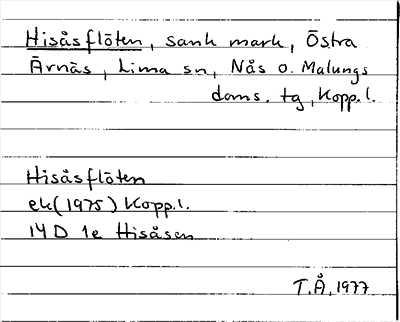 Hisåsflöten, sank mark, Östra
Ärnäs, Lima sn, Nås o. Malungs
doms. tg, Kopp.l.
Hisåsflöten
ek (1975) Kopp.l.
14D 1e Hisåsen
T.Å, 1977